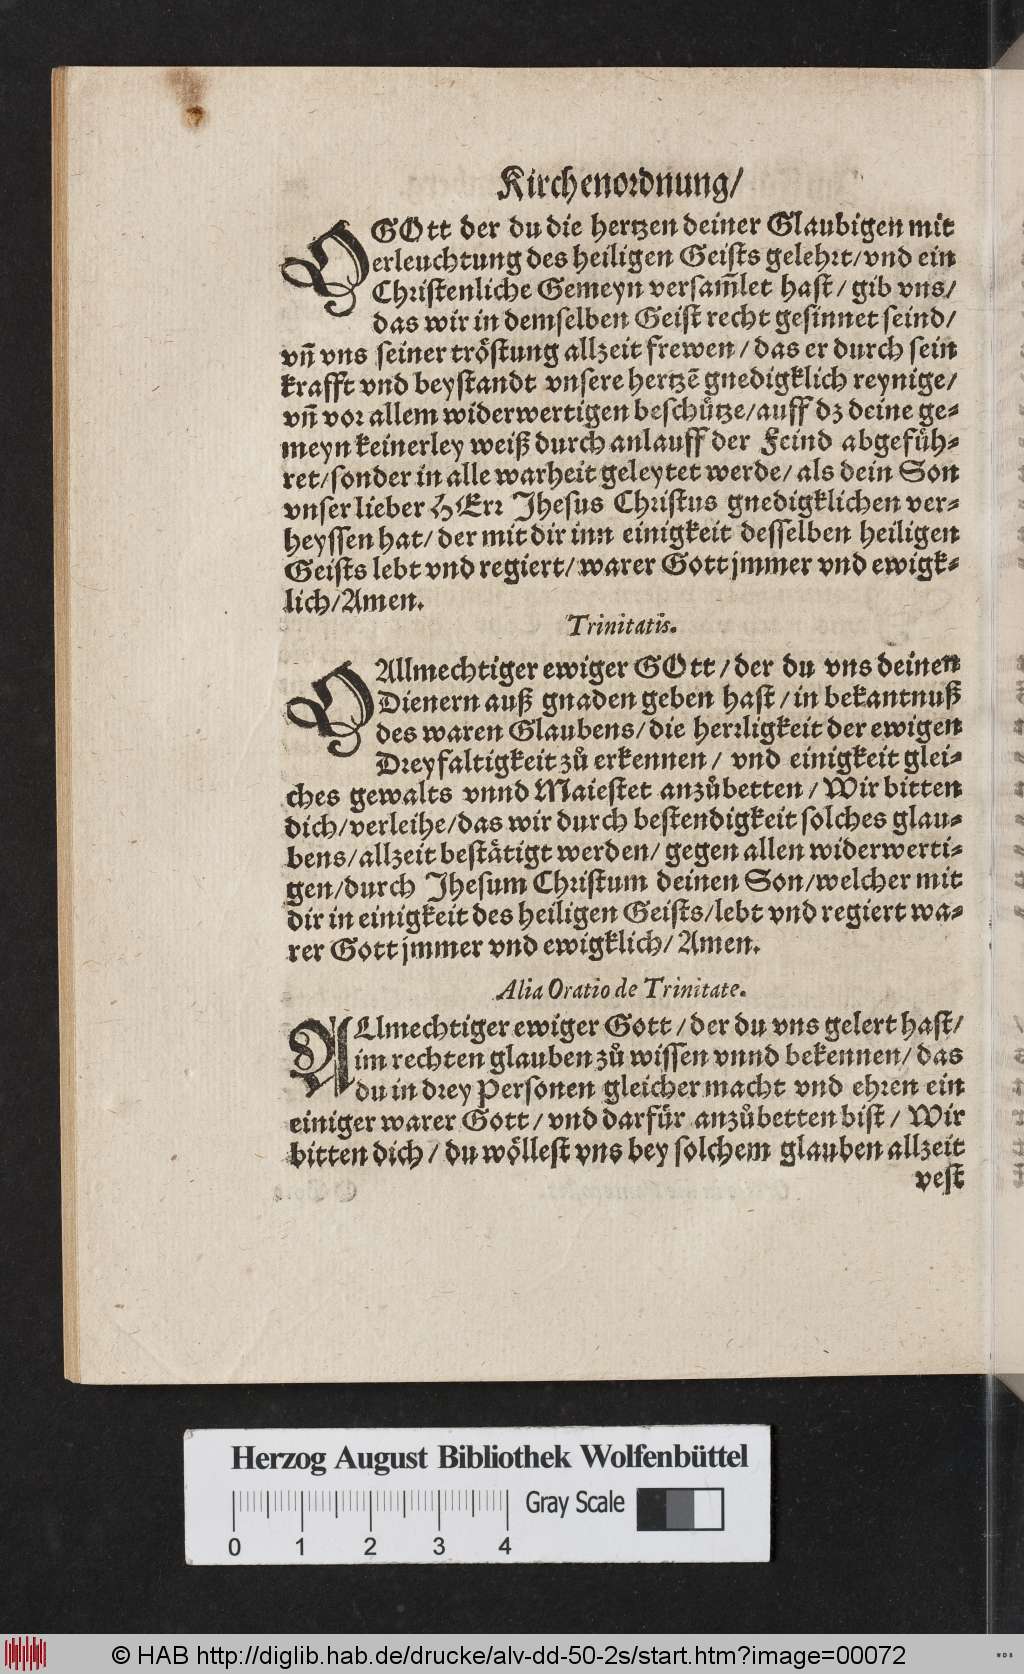 Kirchenordnung/
O GOtt der du die hertzen deiner Glaubigen mit
erleuchtung des heiligen Geists gelehrt/vnd ein
Christenliche Gemeyn versam̃let hast/ gib vns/
das wir in demselben Geist recht gesinnet seind/
vñ vns seiner tröstung allzeit frewen/das er durch sein
krafft vnd beystandt vnsere hertzẽ gnedigklich reynige/
vñ vor allem widerwertigen beschütze/auff dz deine ge-
meyn keinerley weiß durch anlauff der Feind abgefüh-
ret/sonder in alle warheit geleytet werde/ als dein Son
vnser lieber HErr Jhesus Christus gnedigklichen ver-
heyssen hat/ der mit dir inn einigkeit desselben heiligen
Geists lebt vnd regiert/warer Gott jmmer vnd ewigk-
lich/Amen.
Trinitatis.
O Allmechtiger ewiger GOtt/der du vns deinen
Dienern auß gnaden geben hast/in bekantnuß
des waren Glaubens/die herrligkeit der ewigen
Dreyfaltigkeit zů erkennen/ vnd einigkeit glei-
ches gewalts vnnd Maiestet anzůbetten/Wir bitten
dich/verleihe/das wir durch bestendigkeit solches glau-
bens/allzeit bestätigt werden/ gegen allen widerwerti-
gen/durch Jhesum Christum deinen Son/welcher mit
dir in einigkeit des heiligen Geists/lebt vnd regiert wa-
rer Gott jmmer vnd ewigklich/Amen.
Alia Oratio de Trinitate.
ALlmechtiger ewiger Gott/der du vns gelert hast/
im rechten glauben zů wissen vnnd bekennen/das
du in drey Personen gleicher macht vnd ehren ein
einiger warer Gott/vnd darfür anzůbetten bist/ Wir
bitten dich/du wöllest vns bey solchem glauben allzeit
vest
Herzog August Bibliothek Wolfenbüttel
Gray Scale
0 1 2 3 4
© HAB http://diglib.hab.de/drucke/alv-dd-50-2s/start.htm?image=00072